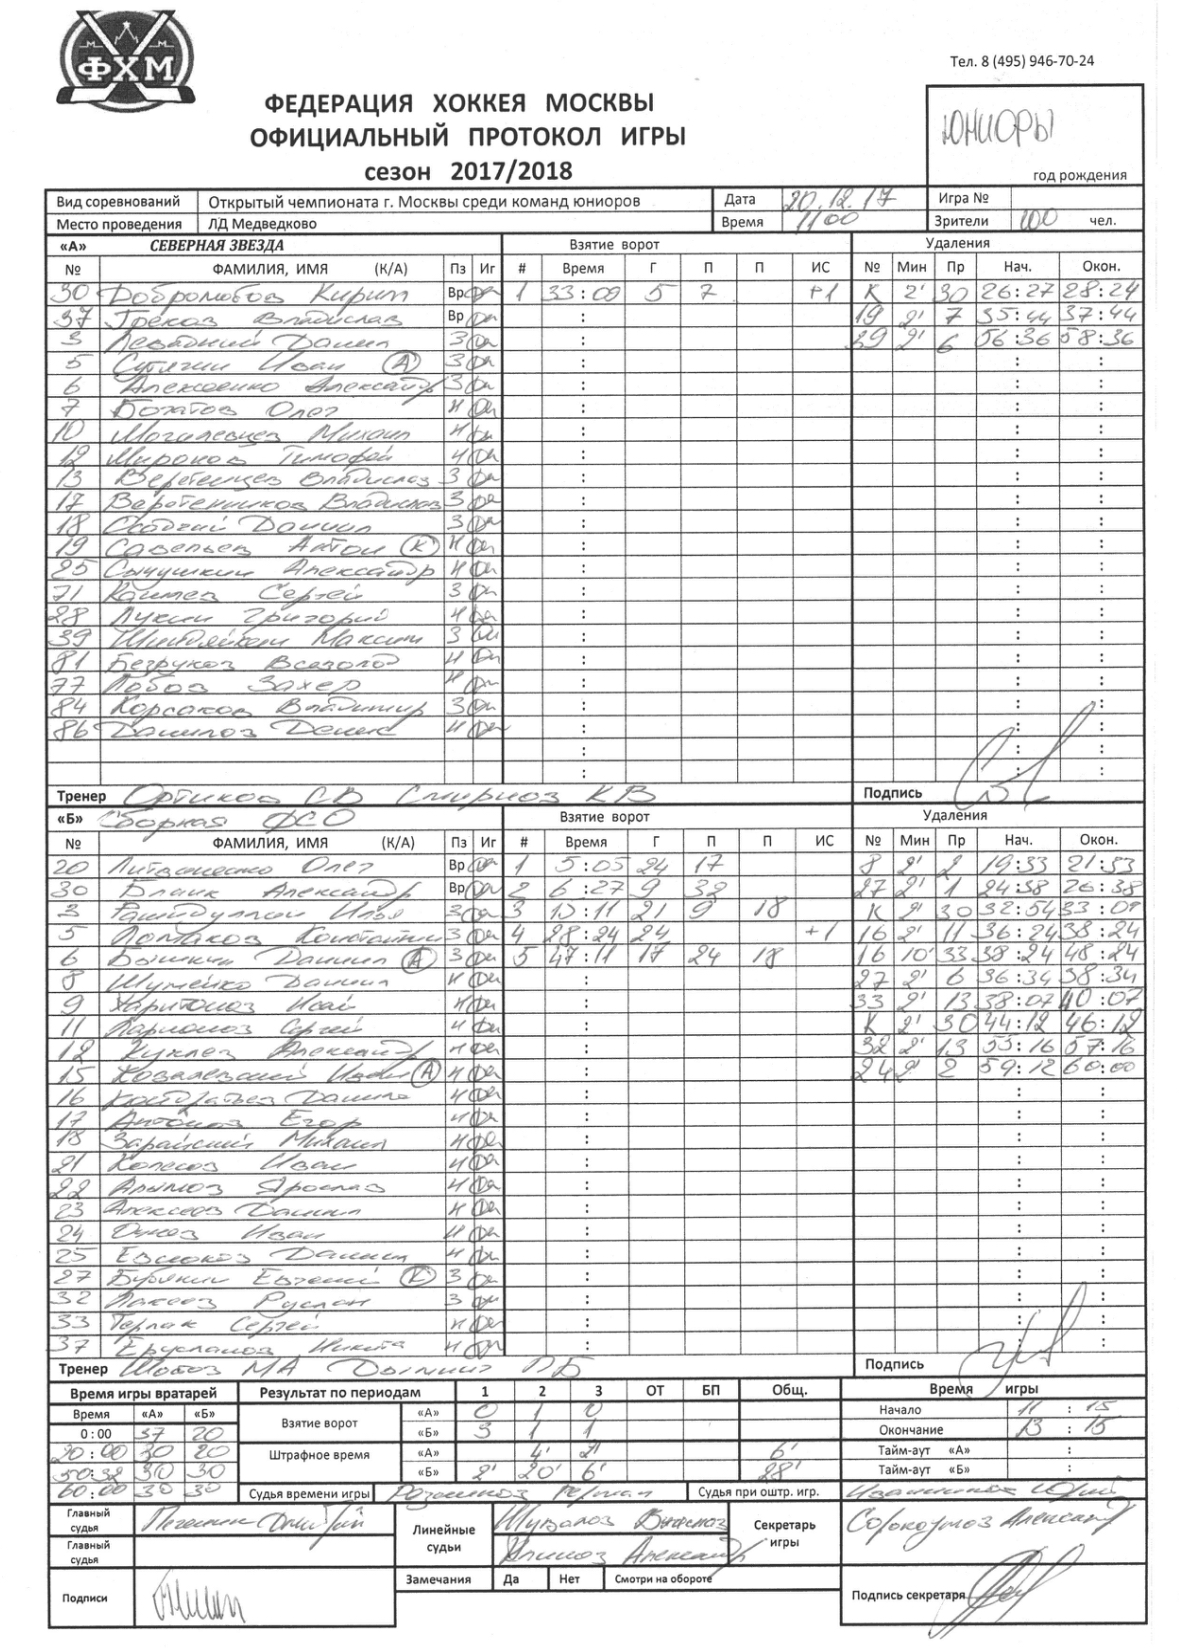 ФХМ
Тел. 8 (495) 946-70-24
ФЕДЕРАЦИЯ ХОККЕЯ МОСКВЫ
ОФИЦИАЛЬНЫЙ ПРОТОКОЛ ИГРЫ
сезон 2017/2018
ЮНИОРЫ
год рождения
Вид соревнований Открытый чемпионата г. Москвы среди команд юниоров Дата 20.12.17 Игра №
Место проведения ЛД Медведково Время 11 00 Зрители 100 чел.
«А» СЕВЕРНАЯ ЗВЕЗДА Взятие ворот Удаления
№ ФАМИЛИЯ, ИМЯ (К/А) Пз Иг # Время Г П П ИС № Мин Пр Нач. Окон.
30 Кирилл Вр да 1 33:09 5 7 +1 К 2' 30 26:27 28:24
37 Греков Владислав Вр да : 19 2' 7 35:44 37:44
3 Данил З да : 39 2' 6 56:36 58:36
5 Сутягин Иван А З да : : :
6 Алексеенко Александр З да : : :
7 Богатов Олег Н да : : :
10 Могилевцев Михаил Н да : : :
12 Миронов Тимофей Н да : : :
13 Владислав З да : : :
17 Веретенников Владислав З да : : :
18 Даниил З да : : :
19 Савельев Антон К Н да : : :
25 Сычушкин Александр Н да : : :
71 Сергей З да : : :
28 Лукин Григорий Н да : : :
39 Максим З да : : :
81 Безруков Всеволод Н да : : :
77 Лобов Захар Н да : : :
84 Корсаков Владимир З да : : :
86 Данилов Денис Н да : : :
: : :
: : :
Тренер Ортиков СВ Смирнов КВ Подпись
«Б» Сборная ФСО Взятие ворот Удаления
№ ФАМИЛИЯ, ИМЯ (К/А) Пз Иг # Время Г П П ИС № Мин Пр Нач. Окон.
20 Литвиненко Олег Вр да 1 5:05 24 17 8 2' 2 19:33 21:33
30 Бланк Александр Вр да 2 6:27 9 32 27 2' 1 24:38 26:38
3 Илья З да 3 15:11 21 9 18 К 2' 30 32:54 33:09
5 Полтаков Константин З да 4 28:24 24 +1 16 2' 11 36:24 38:24
6 Бышкин Даниил А З да 5 47:11 17 24 18 16 10' 33 38:24 48:24
8 Шумейко Даниил Н да : 27 2' 6 36:34 38:34
9 Харитонов Иван Н да : 33 2' 13 38:07 40:07
11 Ларионов Сергей Н да : К 2' 30 44:12 46:12
12 Куклев Александр Н да : 32 2' 13 55:16 57:16
15 Ковалевский Иван А Н да : 24 2' 2 59:12 60:00
16 Кондратьев Данила Н да : : :
17 Антонов Егор Н да : : :
18 Зарайский Михаил Н да : : :
21 Колесов Иван Н да : : :
22 Алымов Ярослав Н да : : :
23 Алексеев Даниил Н да : : :
24 Иван Н да : : :
25 Евсюков Даниил Н да : : :
27 Бурякин Евгений К З да : : :
32 Руслан З да : : :
33 Герлак Сергей Н да : : :
37 Ерусланов Никита Н да : : :
Тренер МА Подпись
Время игры вратарей Результат по периодам 1 2 3 ОТ БП Общ. Время игры
Время «А» «Б» Взятие ворот «А» 0 1 0 Начало 11 : 15
0 : 00 37 20 «Б» 3 1 1 Окончание 13 : 15
20:00 30 20 Штрафное время «А» 4' 2' 6' Тайм-аут «А» :
50:32 30 30 «Б» 2' 20' 6' 28' Тайм-аут «Б» :
60:00 30 30 Судья времени игры Судья при оштр. игр.
Главный судья Дмитрий Линейные судьи Шувалов Секретарь игры Александр
Главный судья Климов Александр
Подписи Замечания Да Нет Смотри на обороте Подпись секретаря